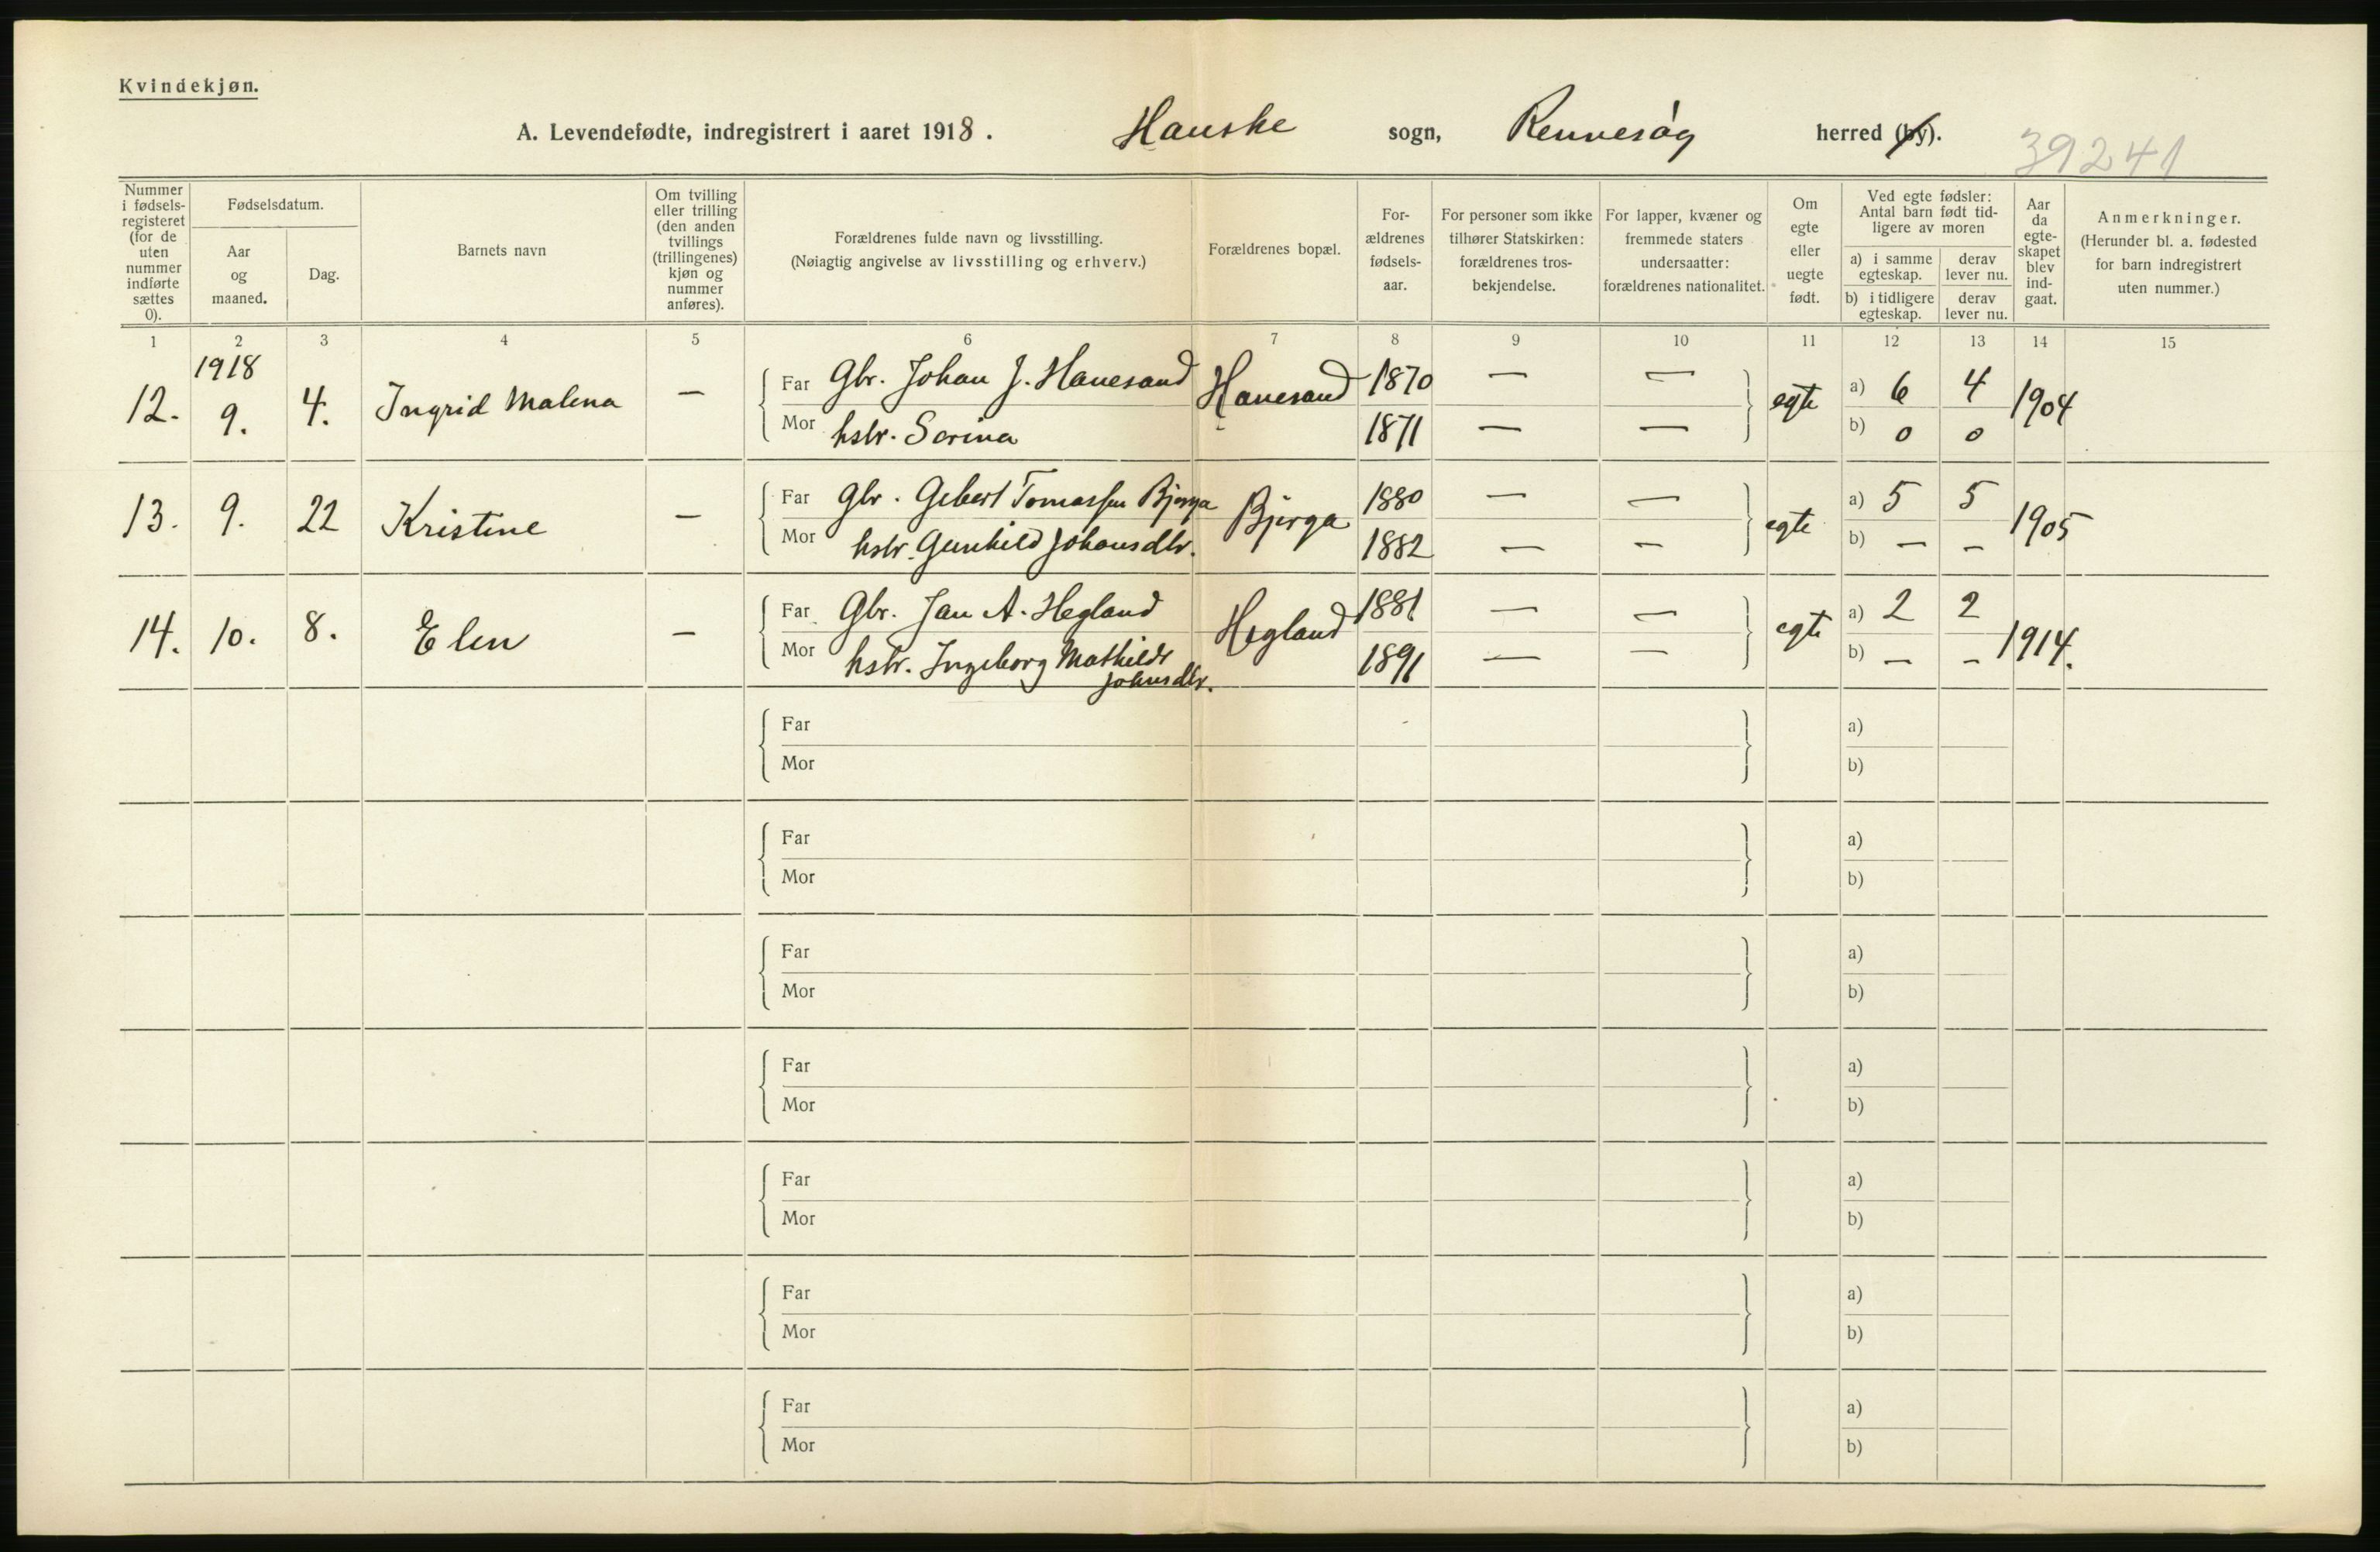 Kvindekjøn.
A. Levendefødte, indregistrert i aaret 1918. Hauske sogn, Rennesøy herred (by).
39241
Nummer i fødselsregisteret (for de uten nummer indførte sættes 0).
Fødselsdatum.
Aar og maaned.
Dag.
Barnets navn
Om tvilling eller trilling (den anden tvillings (trillingenes) kjøn og nummer anføres).
Forældrenes fulde navn og livsstilling.
(Nøiagtig angivelse av livsstilling og erhverv.)
Forældrenes bopæl.
For-ældrenes fødsels-aar.
For personer som ikke tilhører Statskirken: forældrenes tros-bekjendelse.
For lapper, kvæner og fremmede staters undersaatter: forældrenes nationalitet.
Om egte eller uegte født.
Ved egte fødsler: Antal barn født tid-ligere av moren
a) i samme egteskap.
derav lever nu.
b) i tidligere egteskap.
derav lever nu.
Aar da egte-skapet blev ind-gaat.
Anmerkninger.
(Herunder bl. a. fødested for barn indregistrert uten nummer.)
1 2 3 4 5 6 7 8 9 10 11 12 13 14 15
1918
12. 9. 4. Ingrid Malena — Far Gbr. Johan J. Hanesand Hanesand 1870 — — egte a) 6 4 1904
Mor hstr. Serina 1871 — — b) 0 0
13. 9. 22 Kristine — Far Gbr. Gebert Tomassen Bjerga Bjerga 1880 — — egte a) 5 5 1905
Mor hstr. Gunhild Johansdtr. 1882 — — b) — —
14. 10. 8. Elen — Far Gbr. Jan A. Hegland Hegland 1881 — — egte a) 2 2 1914.
Mor hstr. Ingeborg Mathilde 1891 — — b) — —
Johnsdtr.
Far a)
Mor b)
Far a)
Mor b)
Far a)
Mor b)
Far a)
Mor b)
Far a)
Mor b)
Far a)
Mor b)
Far a)
Mor b)